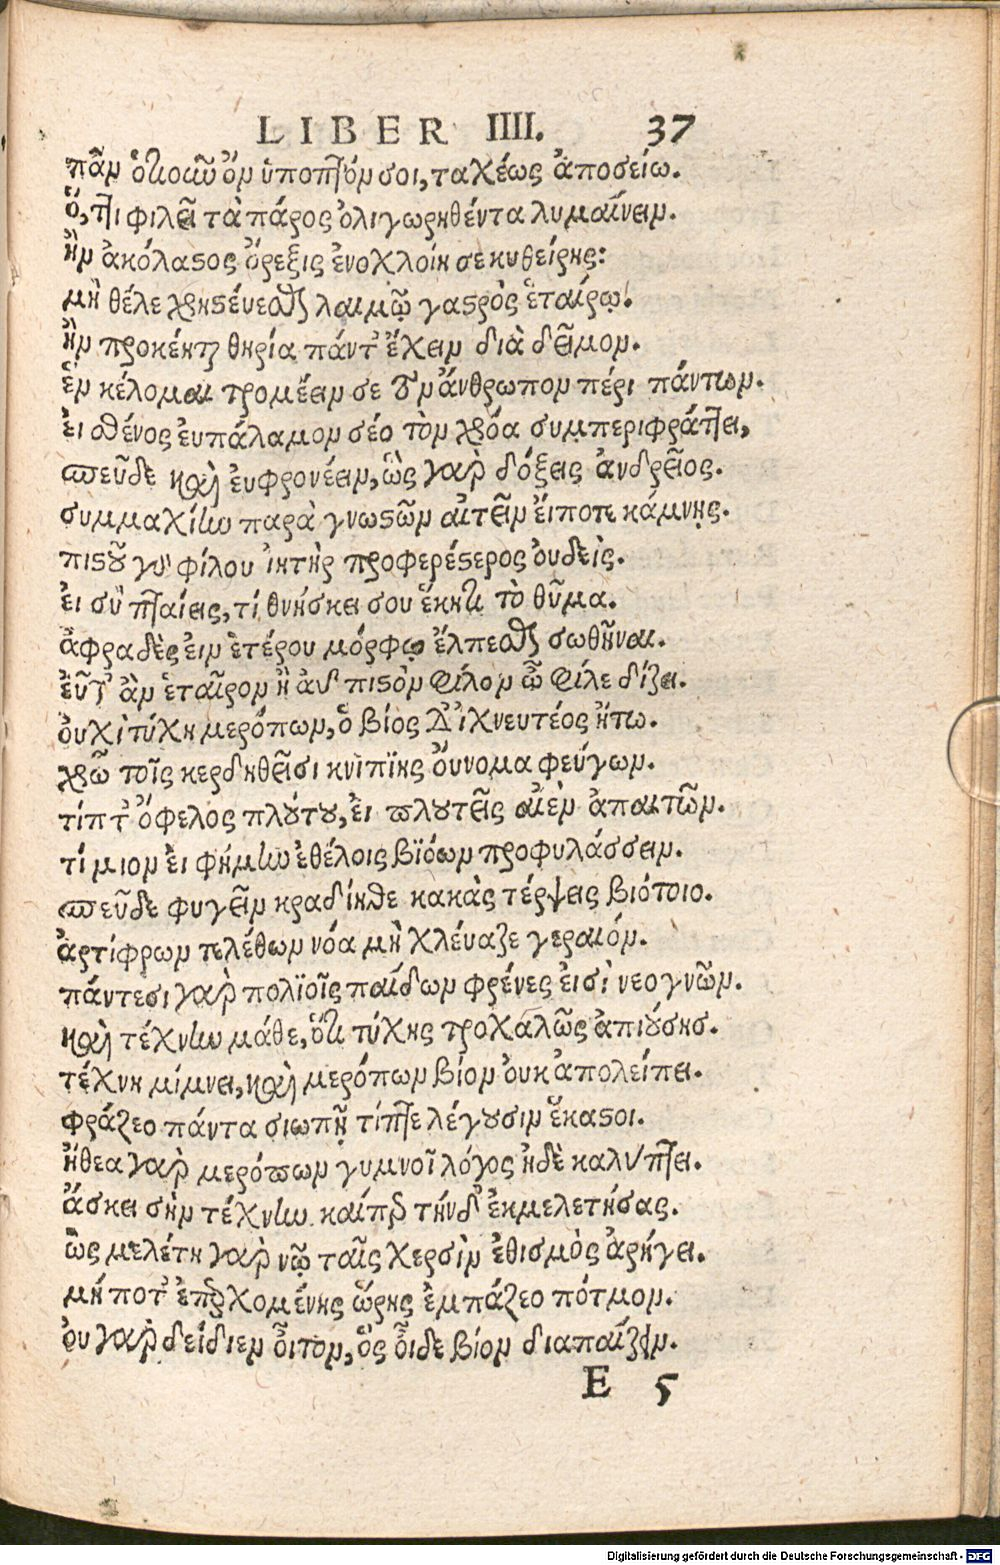 LIBER IIII. 37
πᾶν ὁκοῖον ὂν ὑποπτὸν σοι, ταχέως ἀποσείω.
ὅ,τι φιλεῖ τὰ πάρος ὀλιγωρηθέντα λυμαίνειν.
ἢν ἀκόλαστος ὄρεξις ἐνοχλοίη σε κυθείρης:
μὴ θέλε χρηστεύεσθαι λαιμῷ γαστρὸς ἑταίρῳ.
ἢν προκέηται θηρία πάντ' ἔχειν διὰ δεῖμον.
ἓν κέλομαι τρομέειν σε τὸν ἄνθρωπον πέρι πάντων.
ἐι σθένος ἐυπάλαμον σέο τὸν χρόα συμπεριφράττει,
σπεῦδε καὶ ἐυφρονέειν, ὣς γὰρ δόξεις ἀνδρεῖος.
συμμαχίην παρὰ γνωστῶν αἰτεῖν ἔιποτε κάμνῃς.
πιστοῦ γὰρ φίλου ἰητὴρ προφερέστερος ὀυδεὶς.
ἐι σὺ πταίεις, τί θνήσκει σου ἕκητι τὸ θῦμα.
ἀφραδὲς ἐιν ἑτέρου μόρφῳ ἔλπεσθαι σωθῆναι.
ἐῦτ' ἂν ἑταῖρον ἢ ἀυ πιστὸν φίλον ὦ φίλε δίζει.
ὀυχὶ τύχη μερόπων, ὁ βίος διϊχνευτέος ἤτω.
χρῶ τοῖς κερδηθεῖσι κνιπίης ὄυνομα φεύγων.
τίπτ' ὄφελος πλούτου, ἐι πλουτεῖς αἰὲν ἀπαιτῶν.
τίμιον ἐι φήμην ἐθέλοις βϊόων προφυλάσσειν.
σπεῦδε φυγεῖν κραδίηθε κακὰς τέρψεις βιότοιο.
ἀρτίφρων τελέθων νόα μὴ χλέυαζε γεραιόν.
πάντεσι γὰρ πολϊοῖς παίδων φρένες ἐισὶ νεογνῶν.
καὶ τέχνην μάθε, ὅτι τύχης τροχαλῶς ἀπιούσης.
τέχνη μίμνει, καὶ μερόπων βίον ὀυκ ἀπολείπει.
φράζεο πάντα σιωπῇ τίπτε λέγουσιν ἕκαστοι.
ἤθεα γὰρ μερόπων γυμνοῖ λόγος ἠδὲ καλύπτει.
ἄσκει σὴν τέχνην καίπερ τήνδ' ἐκμελετήσας.
ὣς μελέτη γὰρ νῷ ταῖς χερσὶν ἐθισμὸς ἀρήγει.
μήποτ' ἐπερχομένης ὥρης ἐμπάζεο πότμον.
ὀυ γὰρ δείδιεν ὖιτον, ὃς ὖιδε βίον διαπαίζειν.
E 5
Digitalisierung gefördert durch die Deutsche Forschungsgemeinschaft - DFG